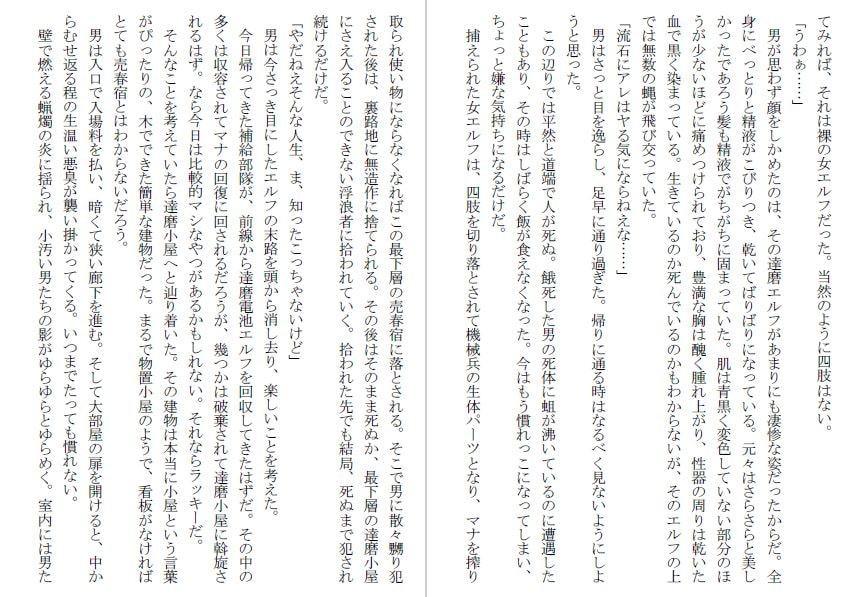 てみれば、それは裸の女エルフだった。当然のように四肢はない。
「うわぁ……」
男が思わず顔をしかめたのは、その達磨エルフがあまりにも凄惨な姿だったからだ。全
身にべっとりと精液がこびりつき、乾いてぱりぱりになっている。元々はさらさらと美し
かったであろう髪も精液でがちがちに固まっていた。肌は青黒く変色していない部分のほ
うが少ないほどに痛めつけられており、豊満な胸は醜く腫れ上がり、性器の周りは乾いた
血で黒く染まっている。生きているのか死んでいるのかもわからないが、そのエルフの上
では無数の蝿が飛び交っていた。
「流石にアレはヤる気にならねえな……」
男はさっと目を逸らし、足早に通り過ぎた。帰りに通る時はなるべく見ないようにしよ
うと思った。
この辺りでは平然と道端で人が死ぬ。餓死した男の死体に蛆が沸いているのに遭遇した
こともあり、その時はしばらく飯が食えなくなった。今はもう慣れっこになってしまい、
ちょっと嫌な気持ちになるだけだ。
捕えられた女エルフは、四肢を切り落とされて機械兵の生体パーツとなり、マナを搾り
取られ使い物にならなくなればこの最下層の売春宿に落とされる。そこで男に散々嬲り犯
された後は、裏路地に無造作に捨てられる。その後はそのまま死ぬか、最下層の達磨小屋
にさえ入ることのできない浮浪者に拾われていく。拾われた先でも結局、死ぬまで犯され
続けるだけだ。
「やだねえそんな人生、ま、知ったこっちゃないけど」
男は今さっき目にしたエルフの末路を頭から消し去り、楽しいことを考えた。
今日帰ってきた補給部隊が、前線から達磨電池エルフを回収してきたはずだ。その中の
多くは収容されてマナの回復に回されるだろうが、幾つかは破棄されて達磨小屋に斡旋さ
れるはず。なら今日は比較的マシなやつがあるかもしれない。それならラッキーだ。
そんなことを考えていたら達磨小屋へと辿り着いた。その建物は本当に小屋という言葉
がぴったりの、木でできた簡単な建物だった。まるで物置小屋のようで、看板がなければ
とても売春宿とはわからないだろう。
男は入口で入場料を払い、暗くて狭い廊下を進む。そして大部屋の扉を開けると、中か
らむせ返る程の生温い悪臭が襲い掛かってくる。いつまでたっても慣れない。
壁で燃える蝋燭の炎に揺られ、小汚い男たちの影がゆらゆらとゆらめく。室内には男た